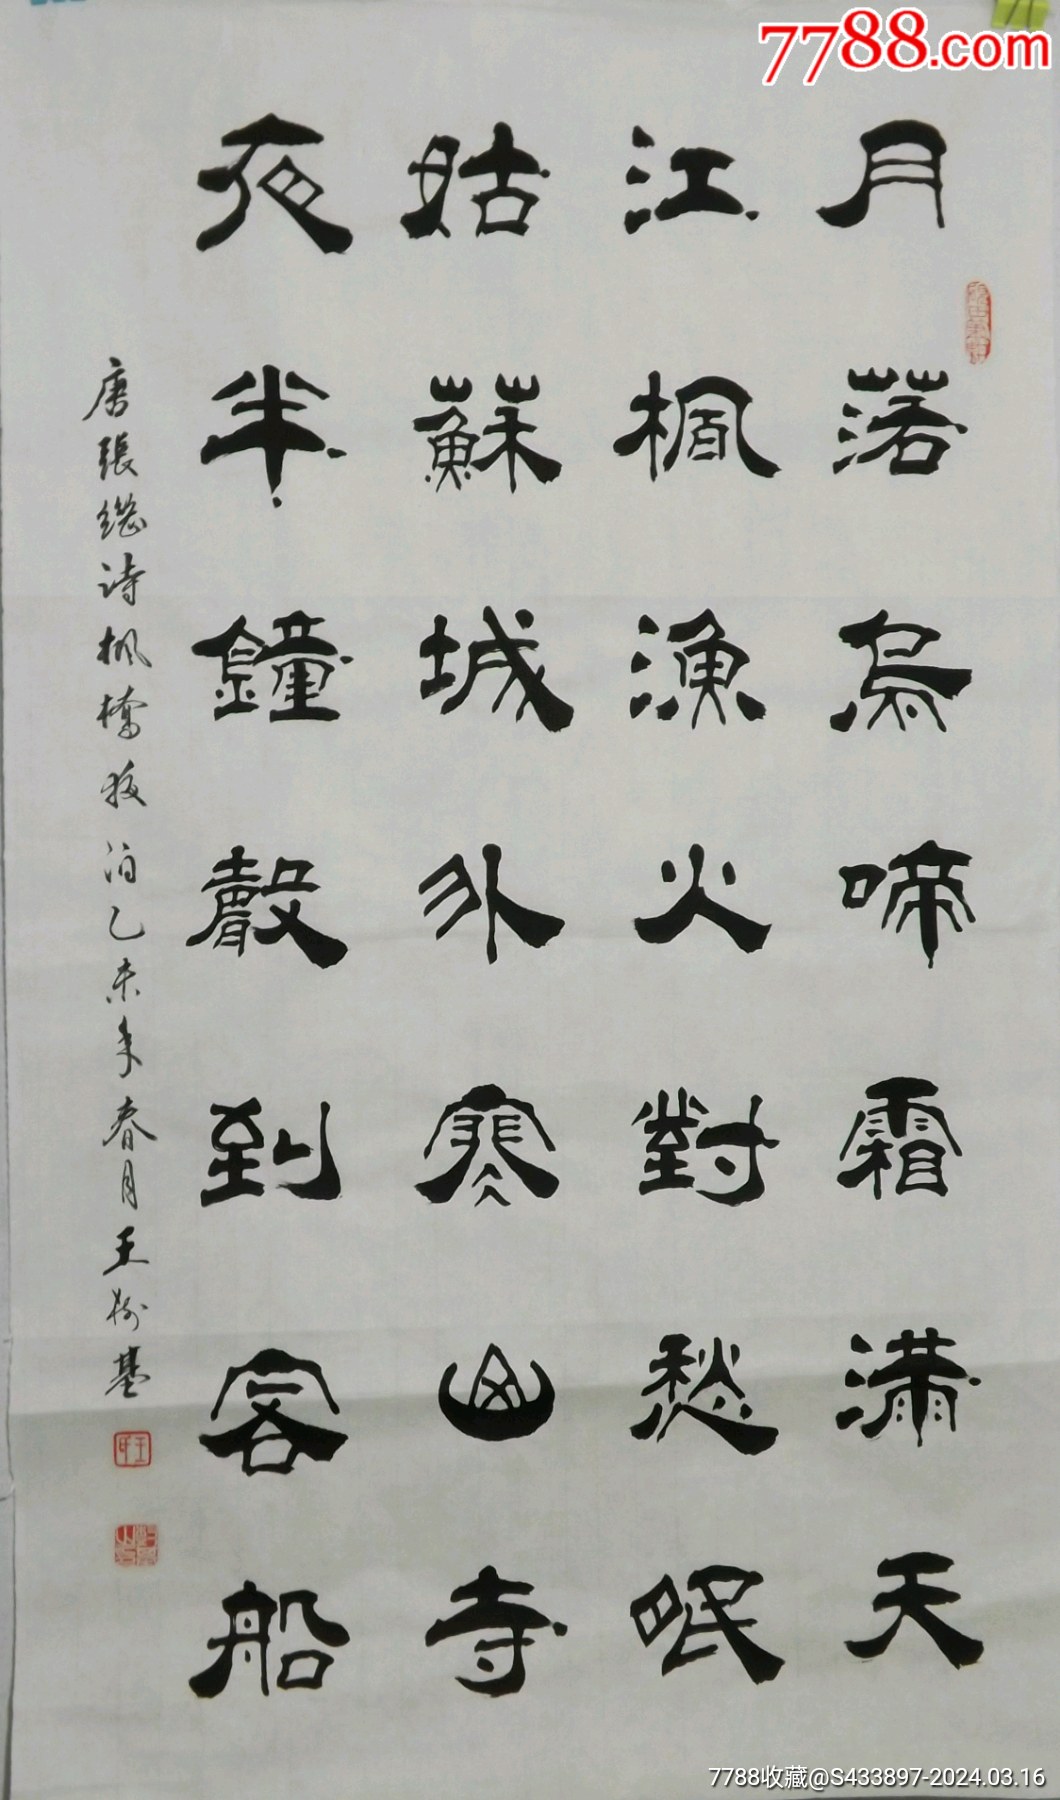 7788.com
月落烏啼霜滿天
江楓漁火對愁眠
姑蘇城外寒山寺
夜半鐘聲到客船
唐張继诗楓橋夜泊乙未年春月王树基
7788收藏@S433897-2024.03.16